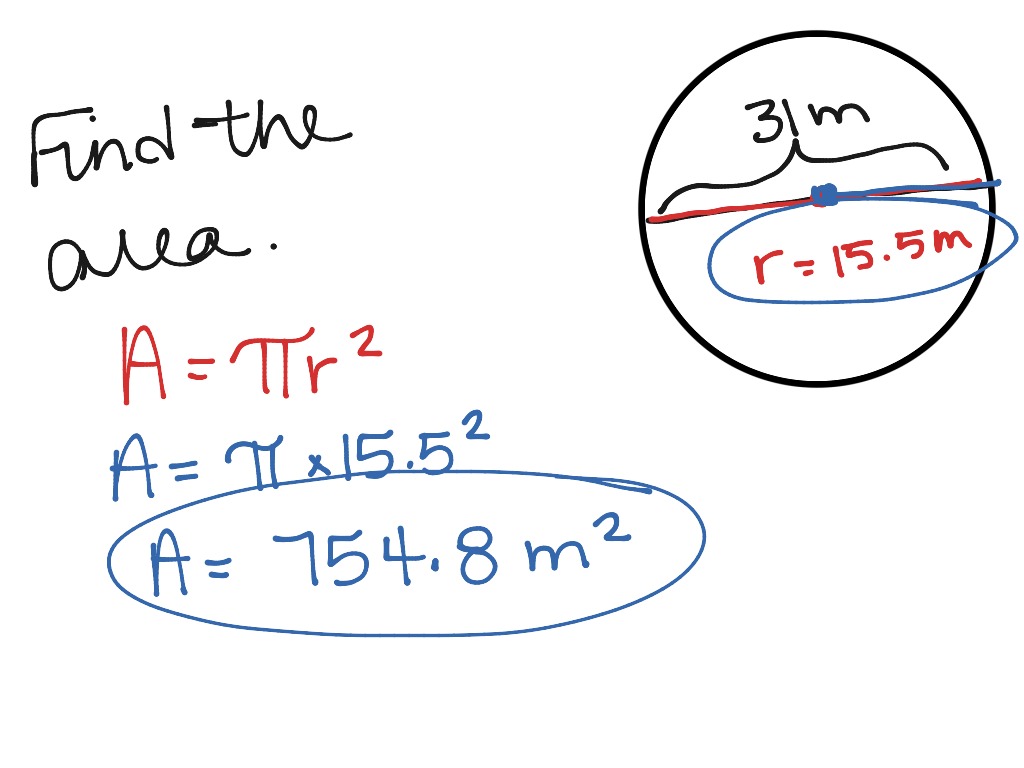 Find the
area.
31 m
r = 15.5 m
A = πr²
A = π × 15.5²
A = 754.8 m²